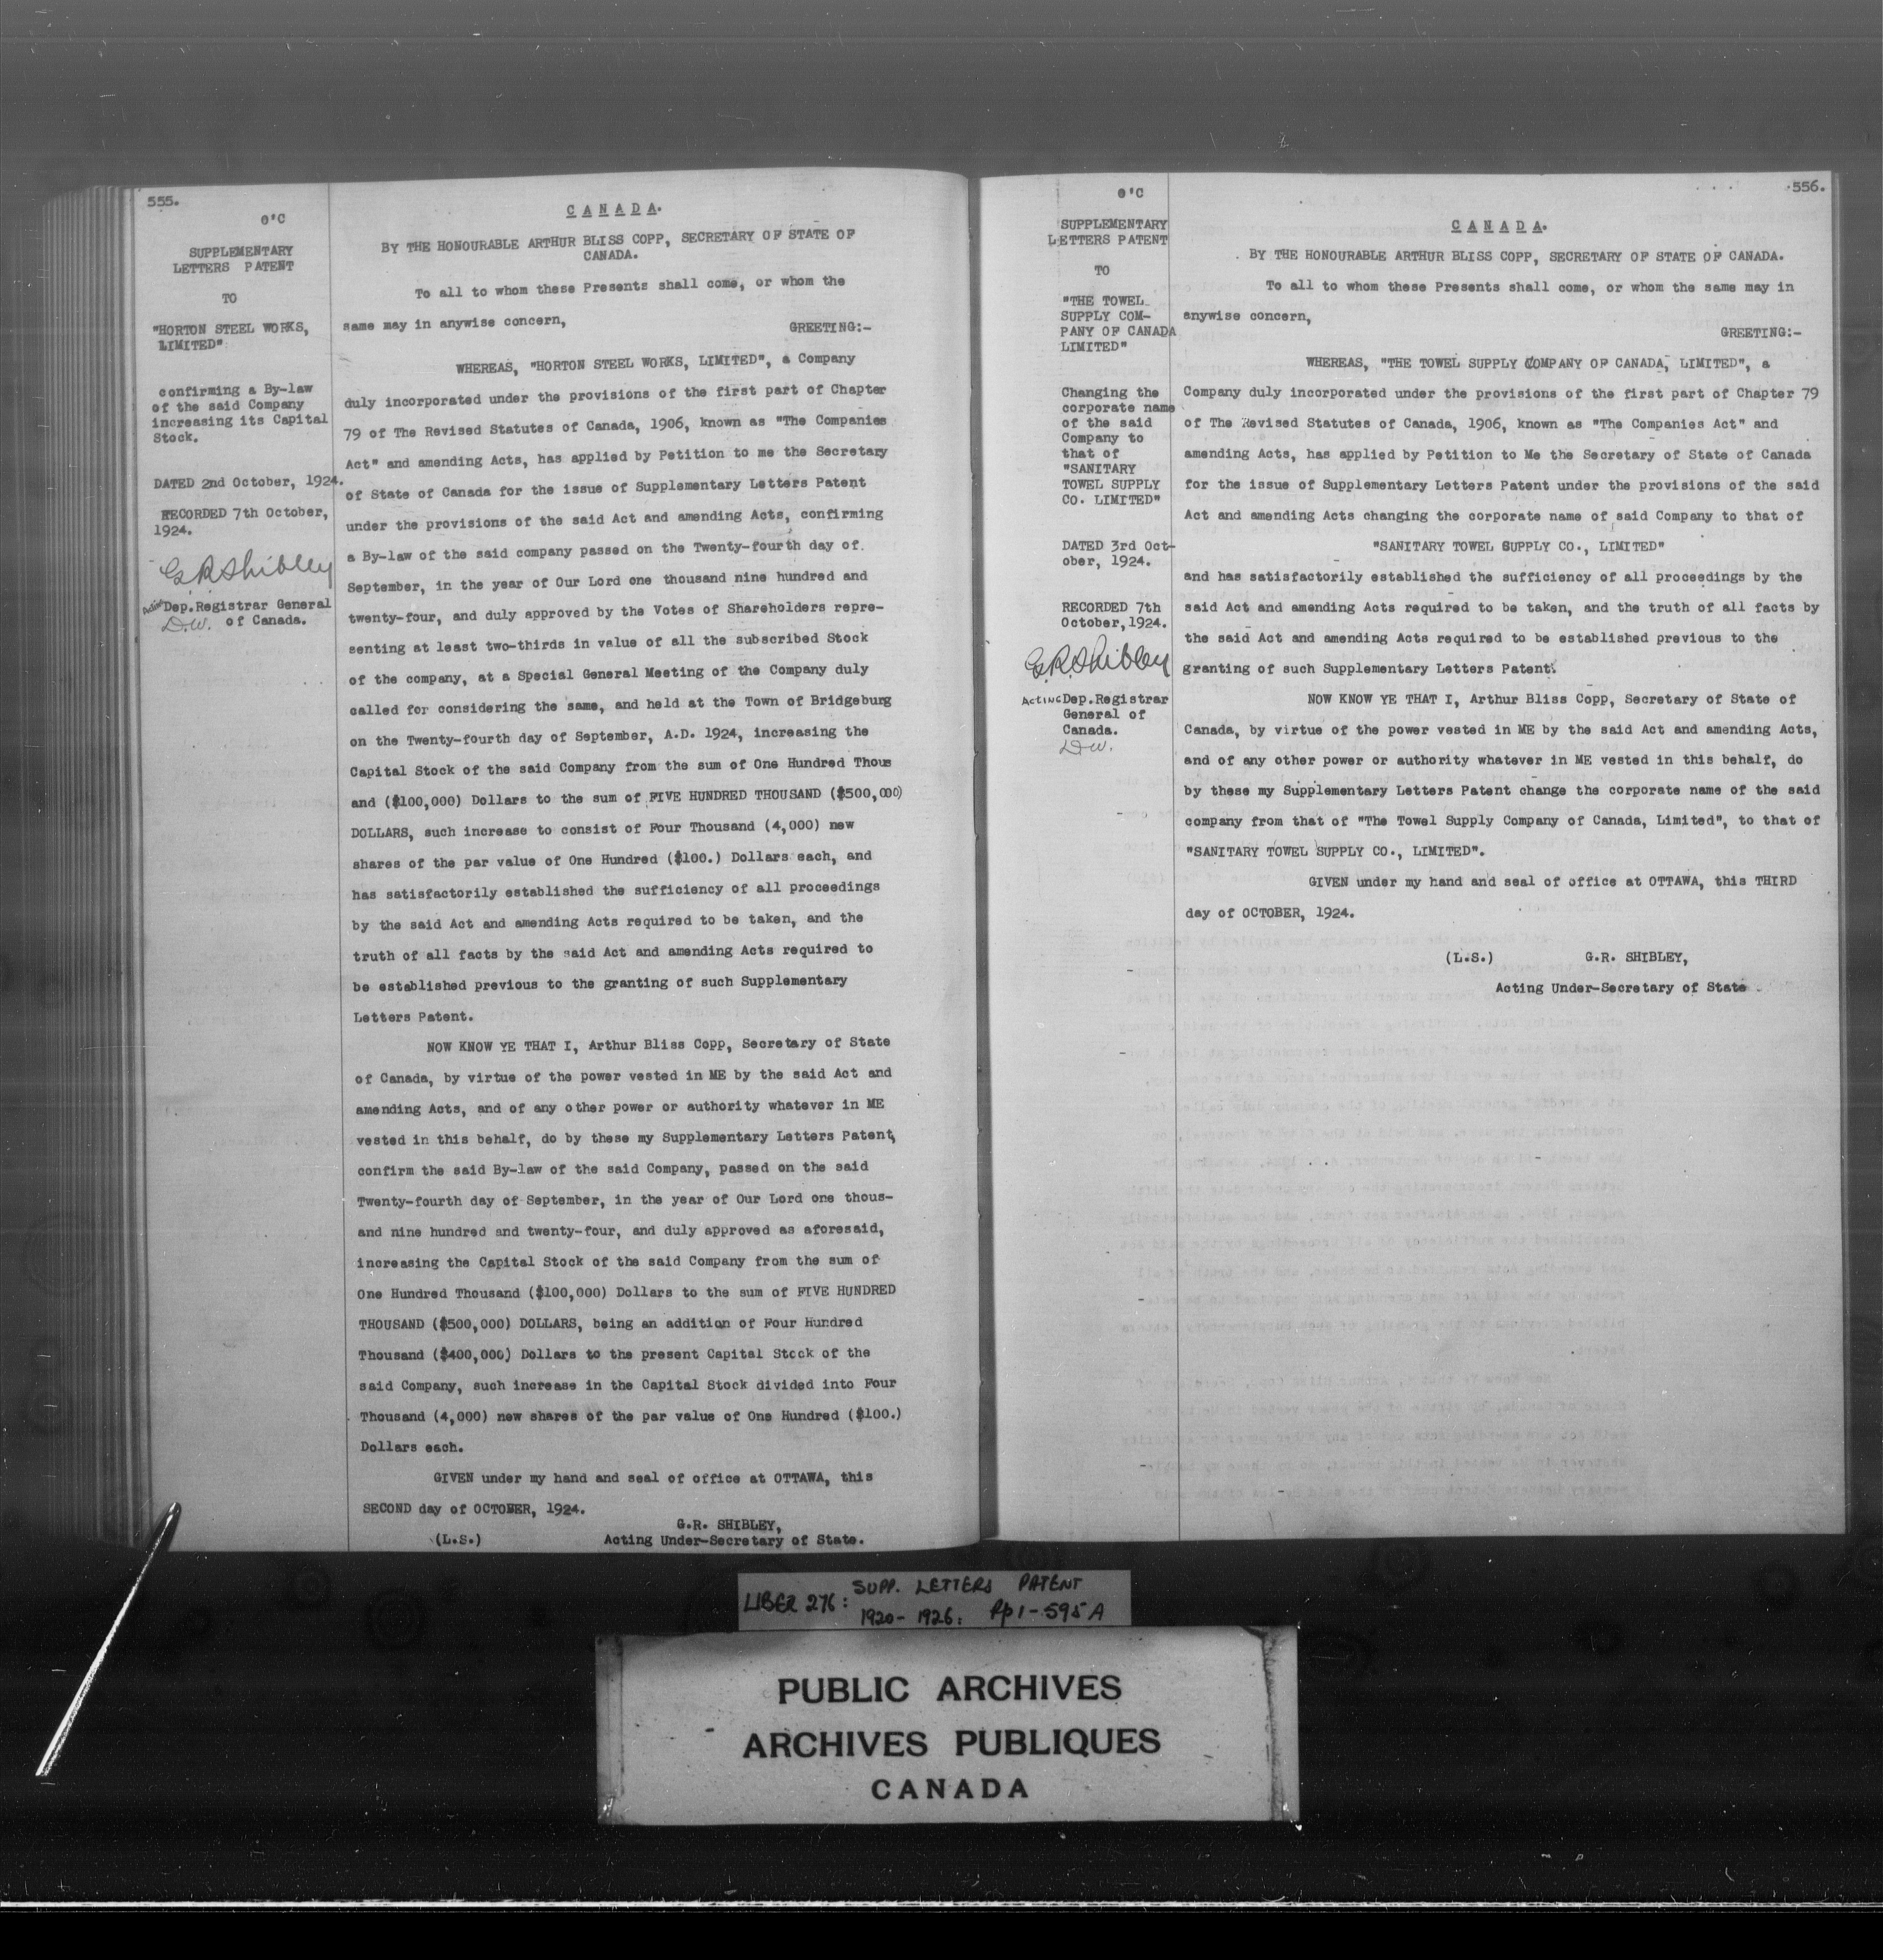 555.
O'C
SUPPLEMENTARY
LETTERS PATENT
TO
"HORTON STEEL WORKS,
LIMITED"
confirming a By-law
of the said Company
increasing its Capital
Stock.
DATED 2nd October, 1924.
RECORDED 7th October,
1924.
G.R. Shibley
Acting Dep.Registrar General
D.W. of Canada.
CANADA.
BY THE HONOURABLE ARTHUR BLISS COPP, SECRETARY OF STATE OF
CANADA.
To all to whom these Presents shall come, or whom the
same may in anywise concern, GREETING:-
WHEREAS, "HORTON STEEL WORKS, LIMITED", a Company
duly incorporated under the provisions of the first part of Chapter
79 of The Revised Statutes of Canada, 1906, known as "The Companies
Act" and amending Acts, has applied by Petition to me the Secretary
of State of Canada for the issue of Supplementary Letters Patent
under the provisions of the said Act and amending Acts, confirming
a By-law of the said company passed on the Twenty-fourth day of
September, in the year of Our Lord one thousand nine hundred and
twenty-four, and duly approved by the Votes of Shareholders repre-
senting at least two-thirds in value of all the subscribed Stock
of the company, at a Special General Meeting of the Company duly
called for considering the same, and held at the Town of Bridgeburg
on the Twenty-fourth day of September, A.D. 1924, increasing the
Capital Stock of the said Company from the sum of One Hundred Thous
and ($100,000) Dollars to the sum of FIVE HUNDRED THOUSAND ($500,000)
DOLLARS, such increase to consist of Four Thousand (4,000) new
shares of the par value of One Hundred ($100.) Dollars each, and
has satisfactorily established the sufficiency of all proceedings
by the said Act and amending Acts required to be taken, and the
truth of all facts by the said Act and amending Acts required to
be established previous to the granting of such Supplementary
Letters Patent.
NOW KNOW YE THAT I, Arthur Bliss Copp, Secretary of State
of Canada, by virtue of the power vested in ME by the said Act and
amending Acts, and of any other power or authority whatever in ME
vested in this behalf, do by these my Supplementary Letters Patent,
confirm the said By-law of the said Company, passed on the said
Twenty-fourth day of September, in the year of Our Lord one thous-
and nine hundred and twenty-four, and duly approved as aforesaid,
increasing the Capital Stock of the said Company from the sum of
One Hundred Thousand ($100,000) Dollars to the sum of FIVE HUNDRED
THOUSAND ($500,000) DOLLARS, being an addition of Four Hundred
Thousand ($400,000) Dollars to the present Capital Stock of the
said Company, such increase in the Capital Stock divided into Four
Thousand (4,000) new shares of the par value of One Hundred ($100.)
Dollars each.
GIVEN under my hand and seal of office at OTTAWA, this
SECOND day of OCTOBER, 1924.
G.R. SHIBLEY,
(L.S.) Acting Under-Secretary of State.
556.
O'C
SUPPLEMENTARY
LETTERS PATENT
TO
"THE TOWEL
SUPPLY COM-
PANY OF CANADA
LIMITED"
Changing the
corporate name
of the said
Company to
that of
"SANITARY
TOWEL SUPPLY
CO. LIMITED"
DATED 3rd Oct-
ober, 1924.
RECORDED 7th
October, 1924.
G.R. Shibley
ACTING Dep.Registrar
General of
Canada.
D.W.
CANADA.
BY THE HONOURABLE ARTHUR BLISS COPP, SECRETARY OF STATE OF CANADA.
To all to whom these Presents shall come, or whom the same may in
anywise concern,
GREETING:-
WHEREAS, "THE TOWEL SUPPLY COMPANY OF CANADA, LIMITED", a
Company duly incorporated under the provisions of the first part of Chapter 79
of The Revised Statutes of Canada, 1906, known as "The Companies Act" and
amending Acts, has applied by Petition to Me the Secretary of State of Canada
for the issue of Supplementary Letters Patent under the provisions of the said
Act and amending Acts changing the corporate name of said Company to that of
"SANITARY TOWEL SUPPLY CO., LIMITED"
and has satisfactorily established the sufficiency of all proceedings by the
said Act and amending Acts required to be taken, and the truth of all facts by
the said Act and amending Acts required to be established previous to the
granting of such Supplementary Letters Patent.
NOW KNOW YE THAT I, Arthur Bliss Copp, Secretary of State of
Canada, by virtue of the power vested in ME by the said Act and amending Acts,
and of any other power or authority whatever in ME vested in this behalf, do
by these my Supplementary Letters Patent change the corporate name of the said
company from that of "The Towel Supply Company of Canada, Limited", to that of
"SANITARY TOWEL SUPPLY CO., LIMITED".
GIVEN under my hand and seal of office at OTTAWA, this THIRD
day of OCTOBER, 1924.
(L.S.) G.R. SHIBLEY,
Acting Under-Secretary of State.
LIBER 276: SUPP. LETTERS PATENT
1920-1926: Pp 1-595A
PUBLIC ARCHIVES
ARCHIVES PUBLIQUES
CANADA